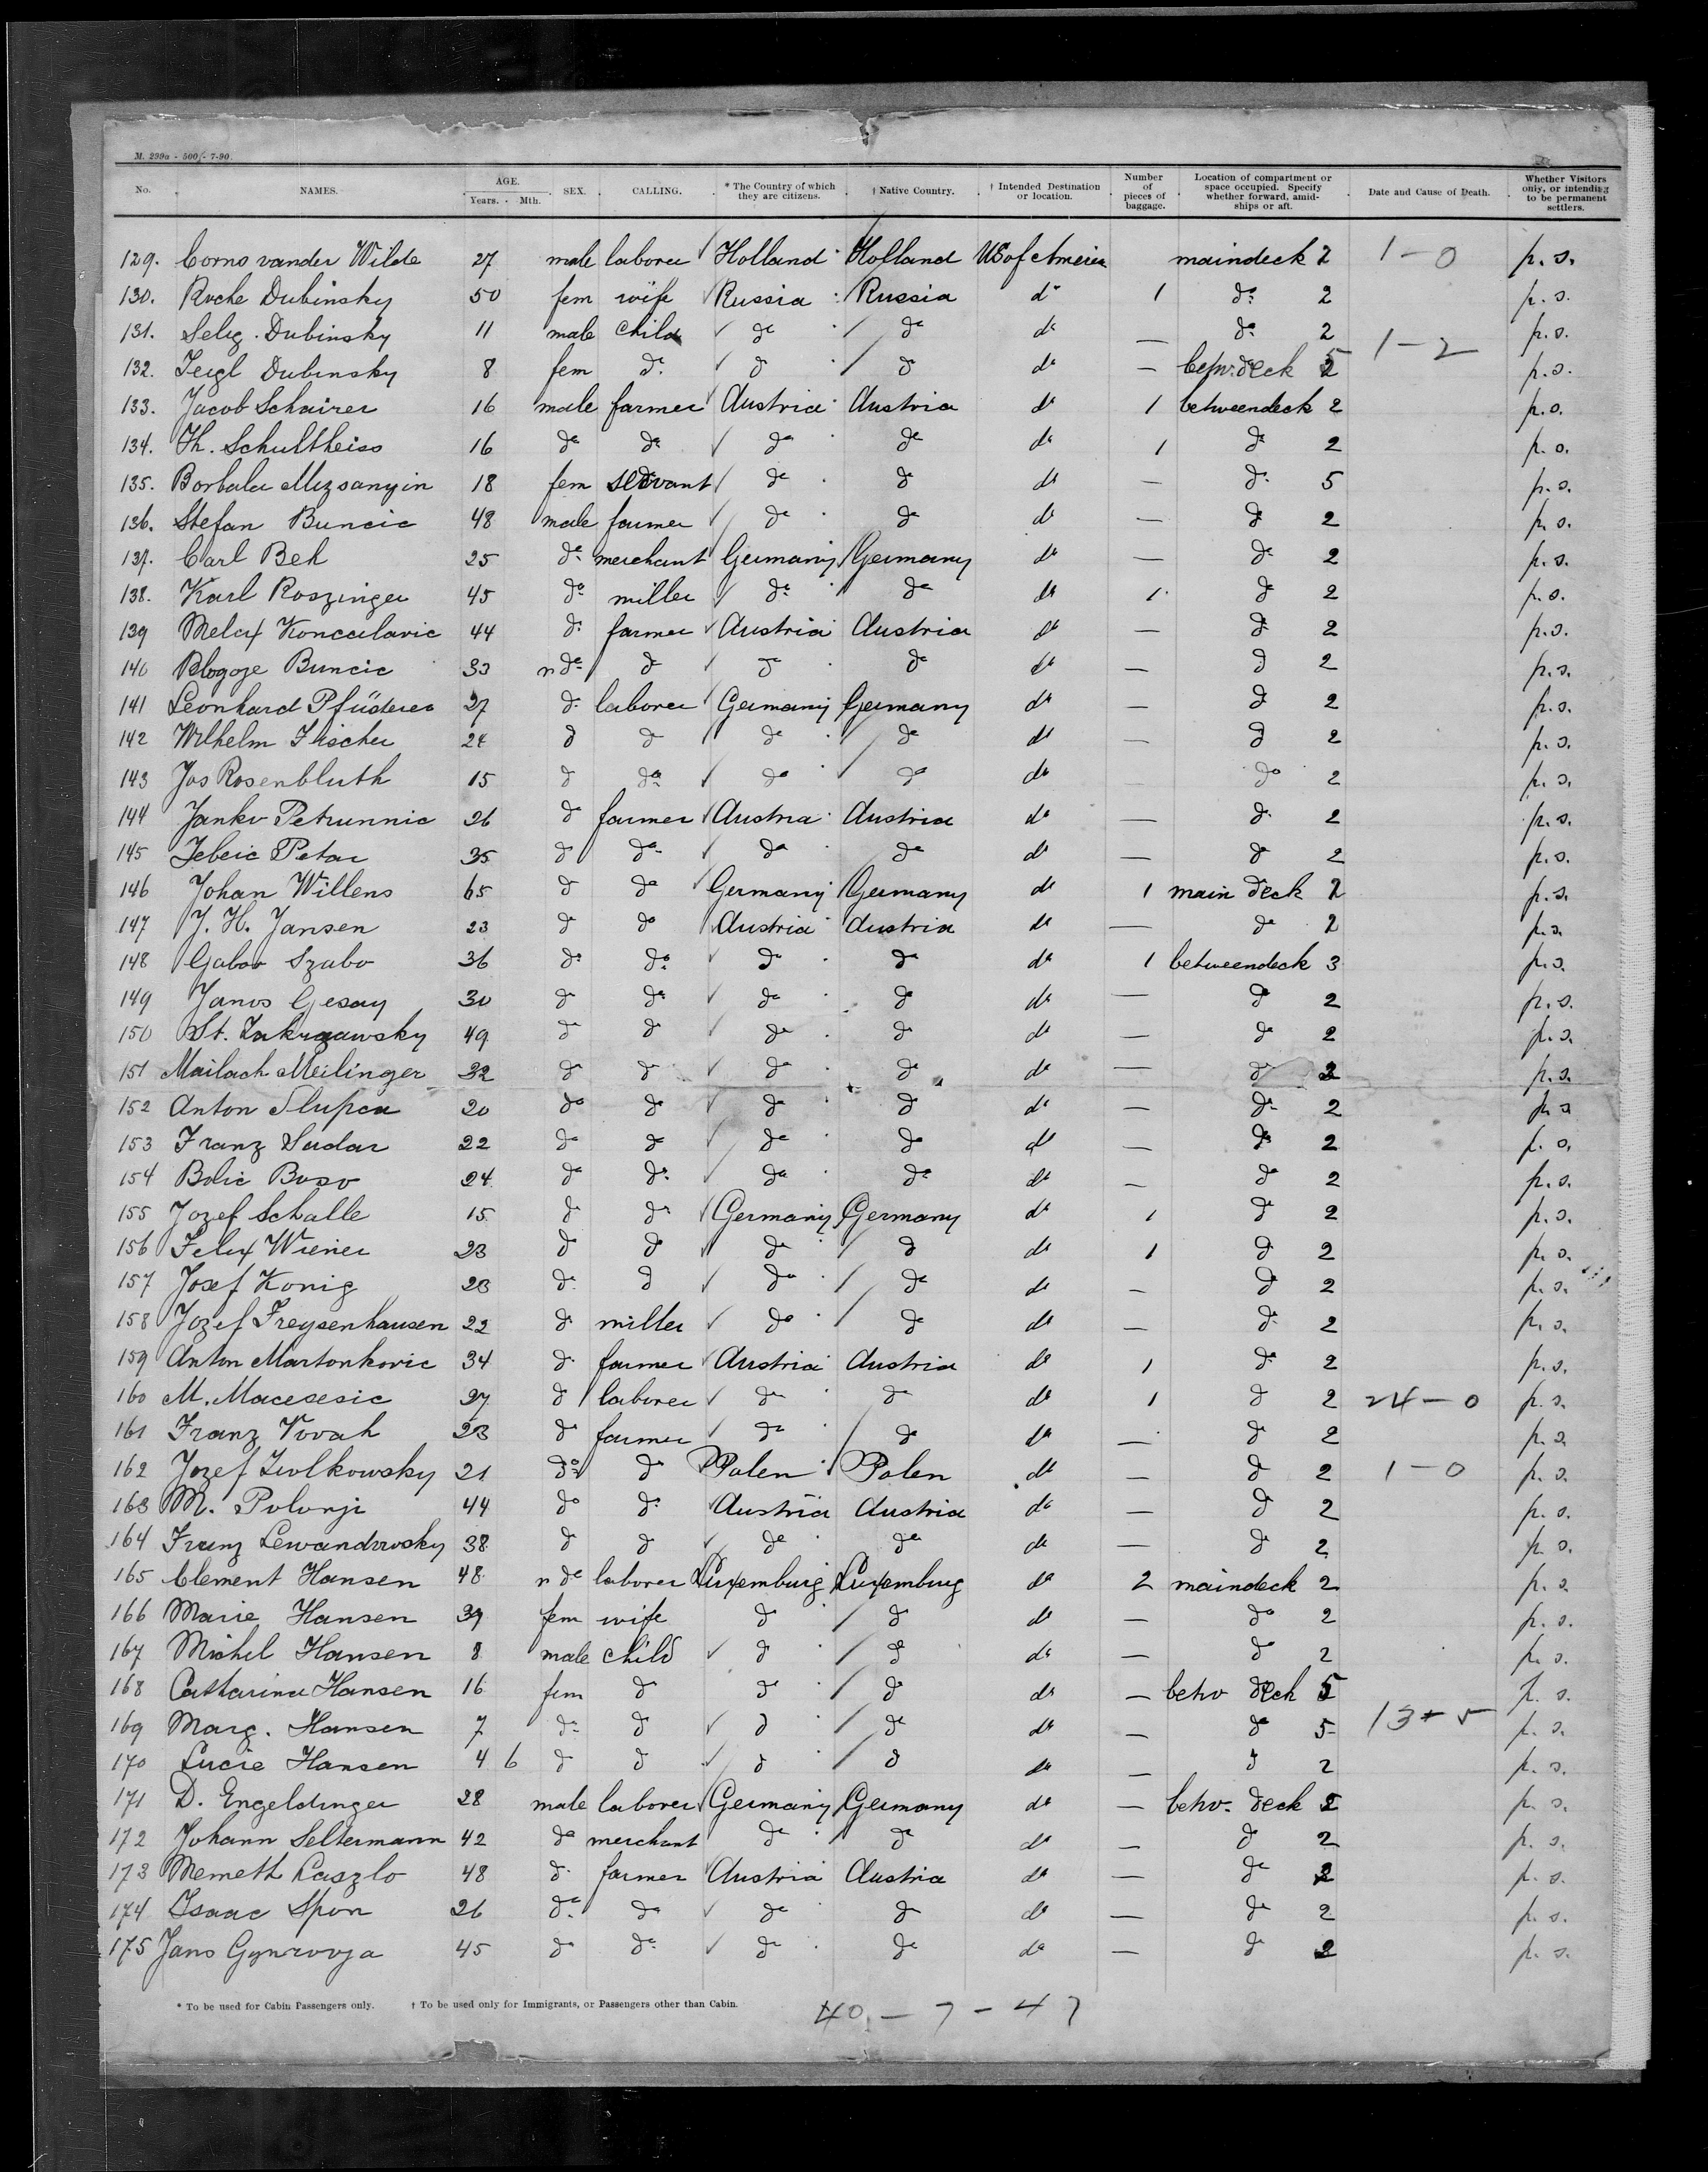 M. 299a - 500/- 7-90.
No. NAMES. AGE. Years. Mth. SEX. CALLING. * The Country of which they are citizens. † Native Country. † Intended Destination or location. Number of pieces of baggage. Location of compartment or space occupied. Specify whether forward, amidships or aft. Date and Cause of Death. Whether Visitors only, or intending to be permanent settlers.
129. Corns vander Wilde 27 male laborer Holland Holland US of America maindeck 2 1-0 p. s.
130. Roche Dubinsky 50 fem wife Russia Russia do 1 do 2 p. s.
131. Selig Dubinsky 11 male child do do do — do 2 p. s.
132. Feigl Dubinsky 8 fem do do do do — betw. deck 5 1-2 p. s.
133. Jacob Schairer 16 male farmer Austria Austria do 1 betweendeck 2 p. s.
134. Th. Schultheiss 16 do do do do do 1 do 2 p. s.
135. Borbala Mizsanyin 18 fem servant do do do — do 5 p. s.
136. Stefan Buncic 48 male farmer do do do — do 2 p. s.
137. Carl Beh 25 do merchant Germany Germany do — do 2 p. s.
138. Karl Roszinger 45 do miller do do do 1 do 2 p. s.
139 Melax Koncalavic 44 do farmer Austria Austria do — do 2 p. s.
140 Blogoje Buncic 33 do do do do do — do 2 p. s.
141 Leonhard Pfüderer 27 do laborer Germany Germany do — do 2 p. s.
142 Wilhelm Fischer 24 do do do do do — do 2 p. s.
143 Jos Rosenbluth 15 do do do do do — do 2 p. s.
144 Janko Petrunnic 26 do farmer Austria Austria do — do 2 p. s.
145 Jebeic Petar 35 do do do do do — do 2 p. s.
146 Johan Willens 65 do do Germany Germany do 1 main deck 2 p. s.
147 J. H. Jansen 23 do do Austria Austria do — do 2 p. s.
148 Gabor Szabo 36 do do do do do 1 betweendeck 3 p. s.
149 Janos Gesay 30 do do do do do — do 2 p. s.
150 St. Zakrzawsky 49 do do do do do — do 2 p. s.
151 Mailach Meilinger 32 do do do do do — do 2 p. s.
152 Anton Slupca 20 do do do do do — do 2 p. s
153 Franz Sudar 22 do do do do do — do 2 p. s.
154 Bolic Boso 24 do do do do do — do 2 p. s.
155 Jozef Schalle 15 do do Germany Germany do 1 do 2 p. s.
156 Felix Wiener 23 do do do do do 1 do 2 p. s.
157 Josef Konig 23 do do do do do — do 2 p. s.
158 Jozef Freysenhausen 22 do miller do do do — do 2 p. s.
159 Anton Martonkovic 34 do farmer Austria Austria do 1 do 2 p. s.
160 M. Macesesic 27 do laborer do do do 1 do 2 24-0 p. s.
161 Franz Vovak 23 do farmer do do do — do 2 p. s.
162 Jozef Ziolkowsky 21 do do Polen Polen do — do 2 1-0 p. s.
163 M. Polonji 44 do do Austria Austria do — do 2 p. s.
164 Franz Lewandowsky 38 do do do do do — do 2 p. s.
165 Clement Hansen 48 do laborer Luxemburg Luxemburg do 2 maindeck 2 p. s.
166 Marie Hansen 39 fem wife do do do — do 2 p. s.
167 Michel Hansen 8 male child do do do — do 2 p. s.
168 Catharina Hansen 16 fem do do do do — betw deck 5 p. s.
169 Marg. Hansen 7 do do do do do — do 5 13+5 p. s.
170 Lucie Hansen 4 6 do do do do do — do 2 p. s.
171 D. Engeldinger 28 male laborer Germany Germany do — betw. deck 2 p. s.
172 Johann Seltermann 42 do merchant do do do — do 2 p. s.
173 Nemeth Laszlo 48 do farmer Austria Austria do — do 2 p. s.
174 Isaac Spon 26 do do do do do — do 2 p. s.
175 Jans 45 do do do do do — do 2 p. s.
* To be used for Cabin Passengers only. † To be used only for Immigrants, or Passengers other than Cabin.
40 - 7 - 47